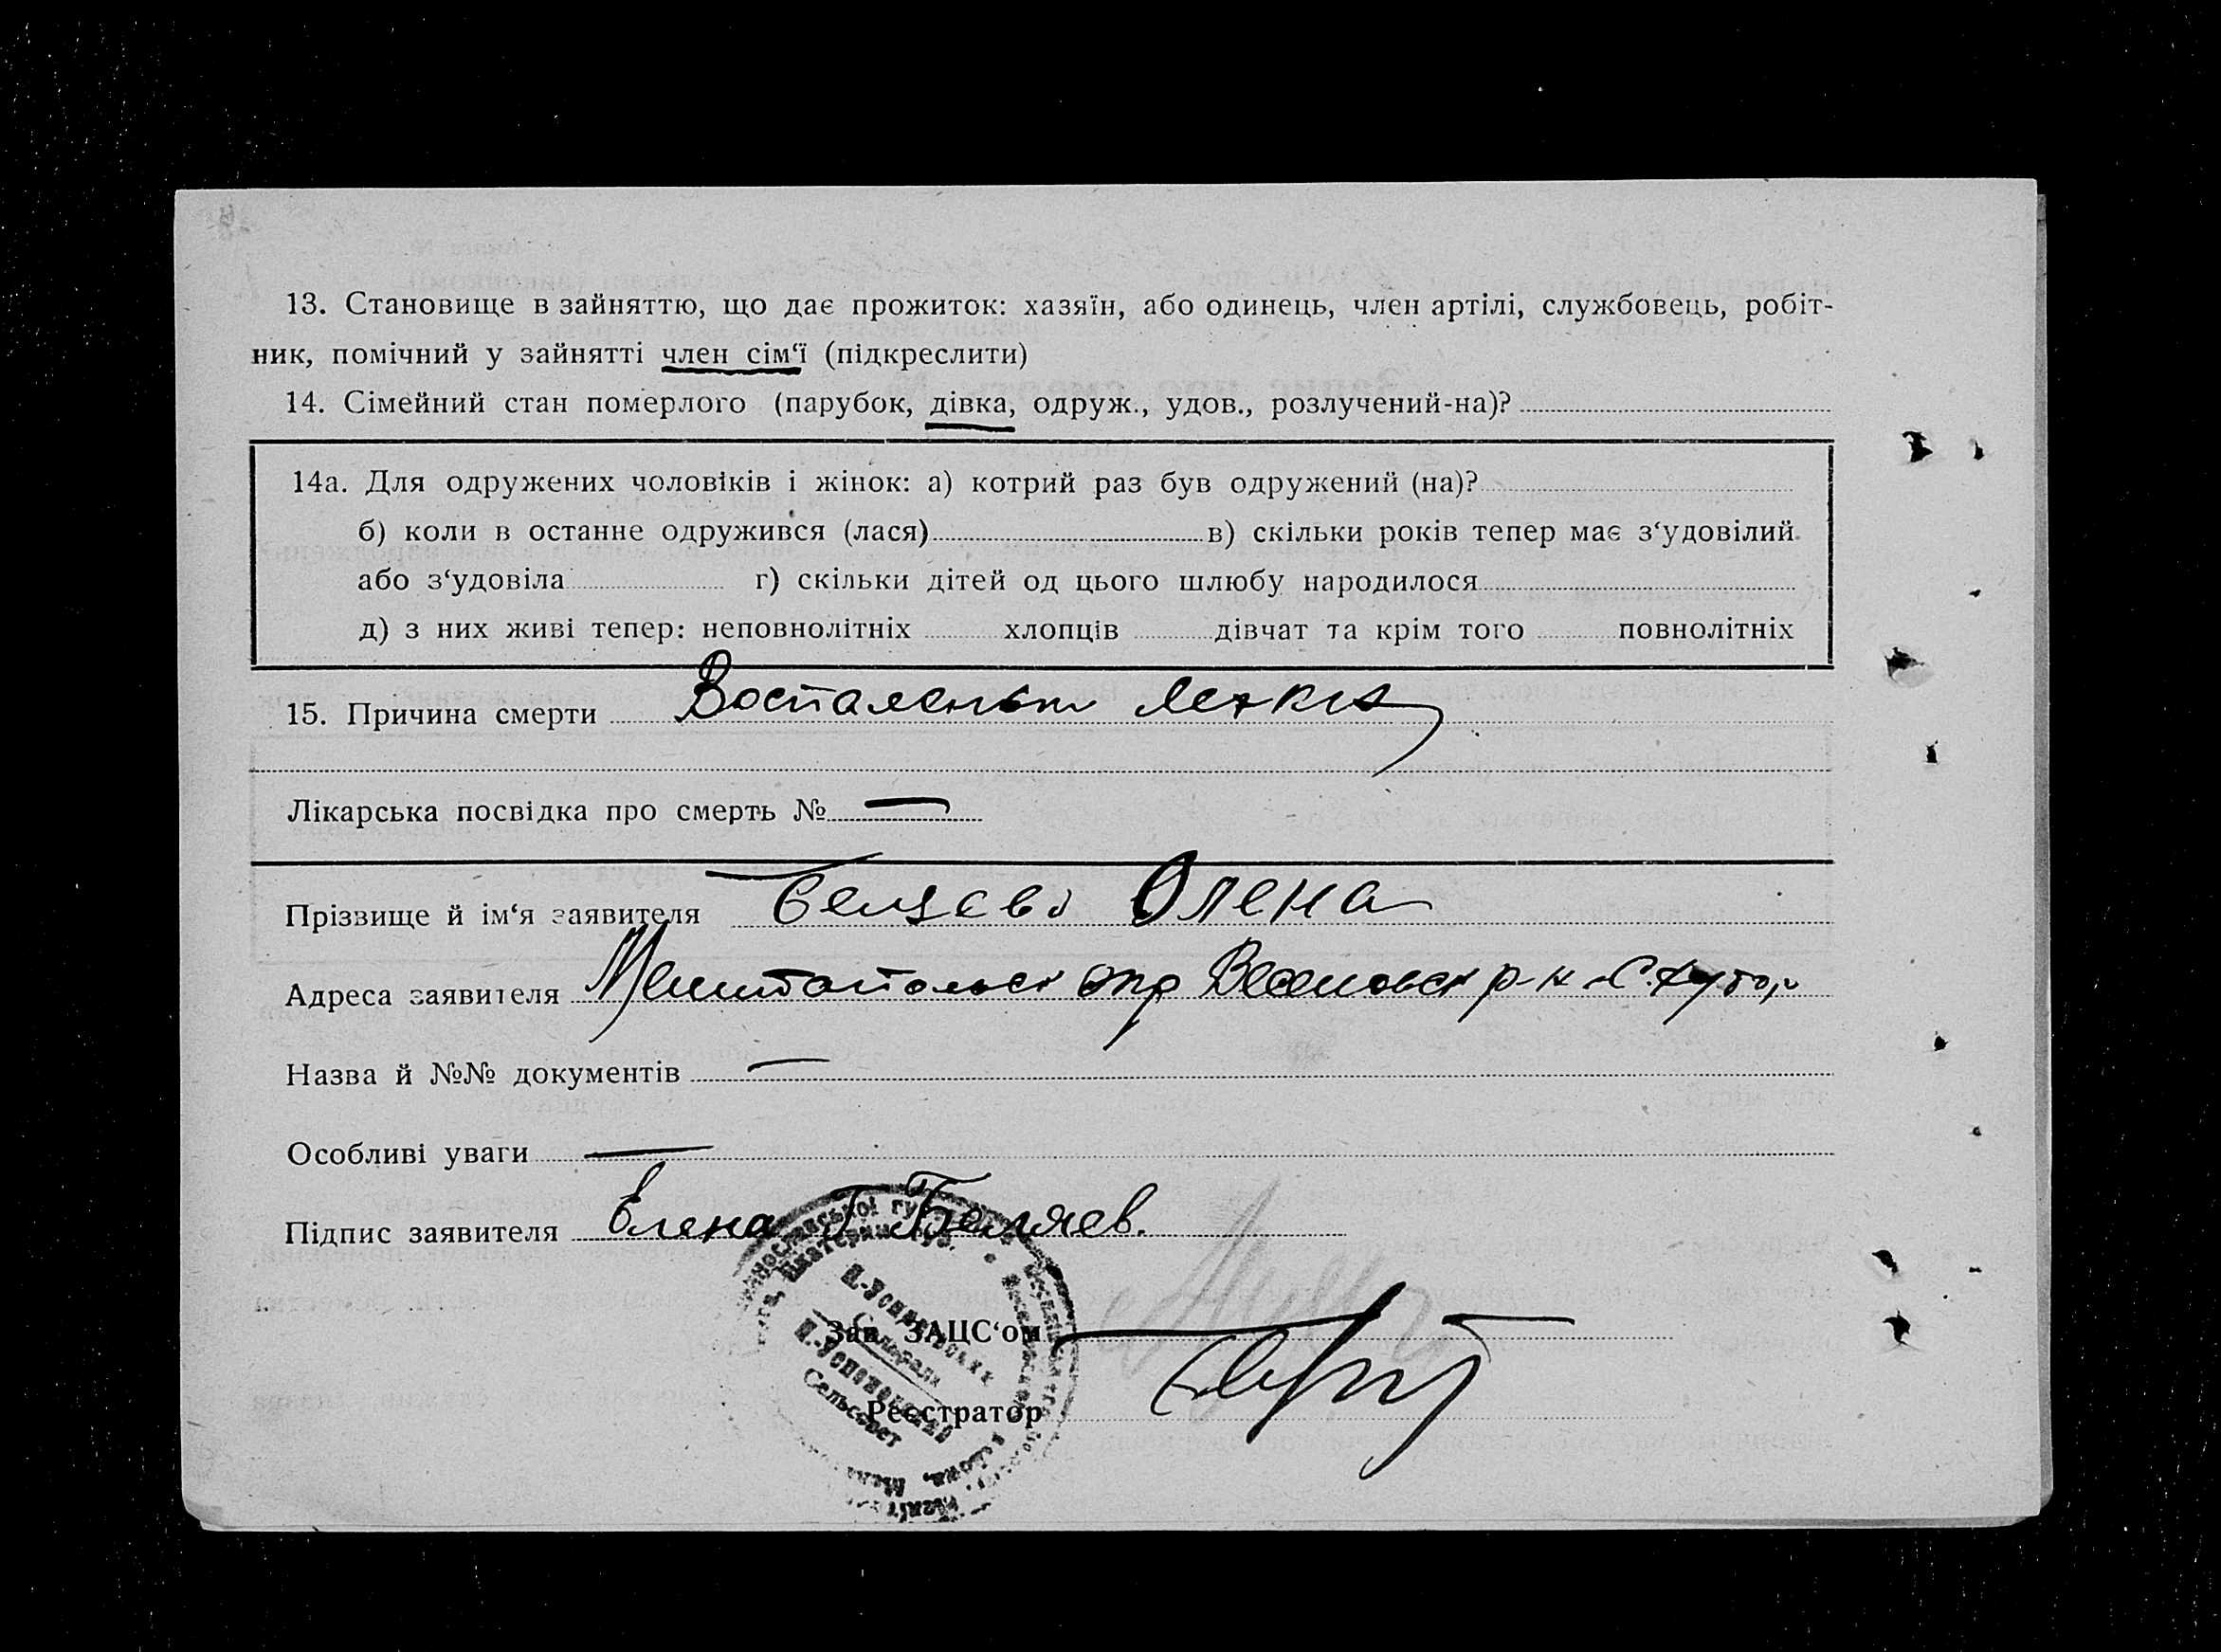 13. Становище в зайняттю, що дає прожиток: хазяїн, або одинець, член артілі, службовець, робіт-
ник, помічний у зайнятті член сім‘ї (підкреслити)
14. Сімейний стан померлого (парубок, дівка, одруж., удов., розлучений-на)?
14а. Для одружених чоловіків і жінок: а) котрий раз був одружений (на)?
б) коли в останне одружився (лася) в) скільки років тепер має з‘удовілий
або з‘удовіла г) скільки дітей од цього шлюбу народилося
д) з них живі тепер: неповнолітніх хлопців дівчат та крім того повнолітніх
15. Причина смерти
Лікарська посвідка про смерть № —
Прізвище й ім‘я заявителя Олена
Адреса заявителя р-н
Назва й №№ документів —
Особливі уваги —
Підпис заявителя Елена
Зав. ЗАЦС‘ом
Реєстратор